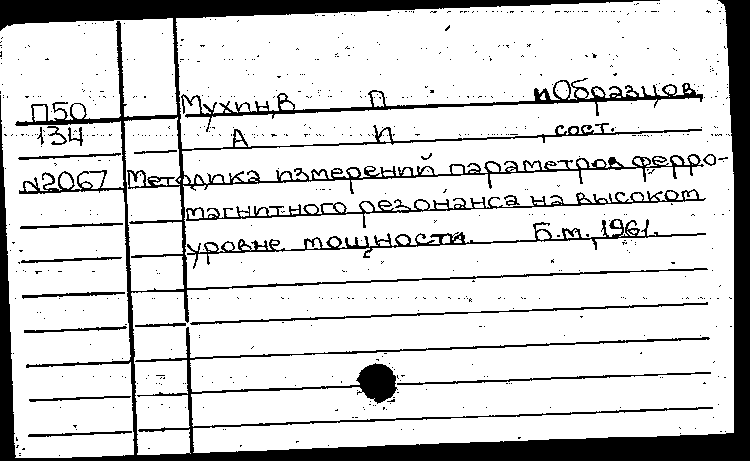 П50 Мухин, В П и Образцов,
134 А И , сост.
N2067 Методика измерений параметров ферро-
магнитного резонанса на высоком
уровне мощности. Б.м., 1961.